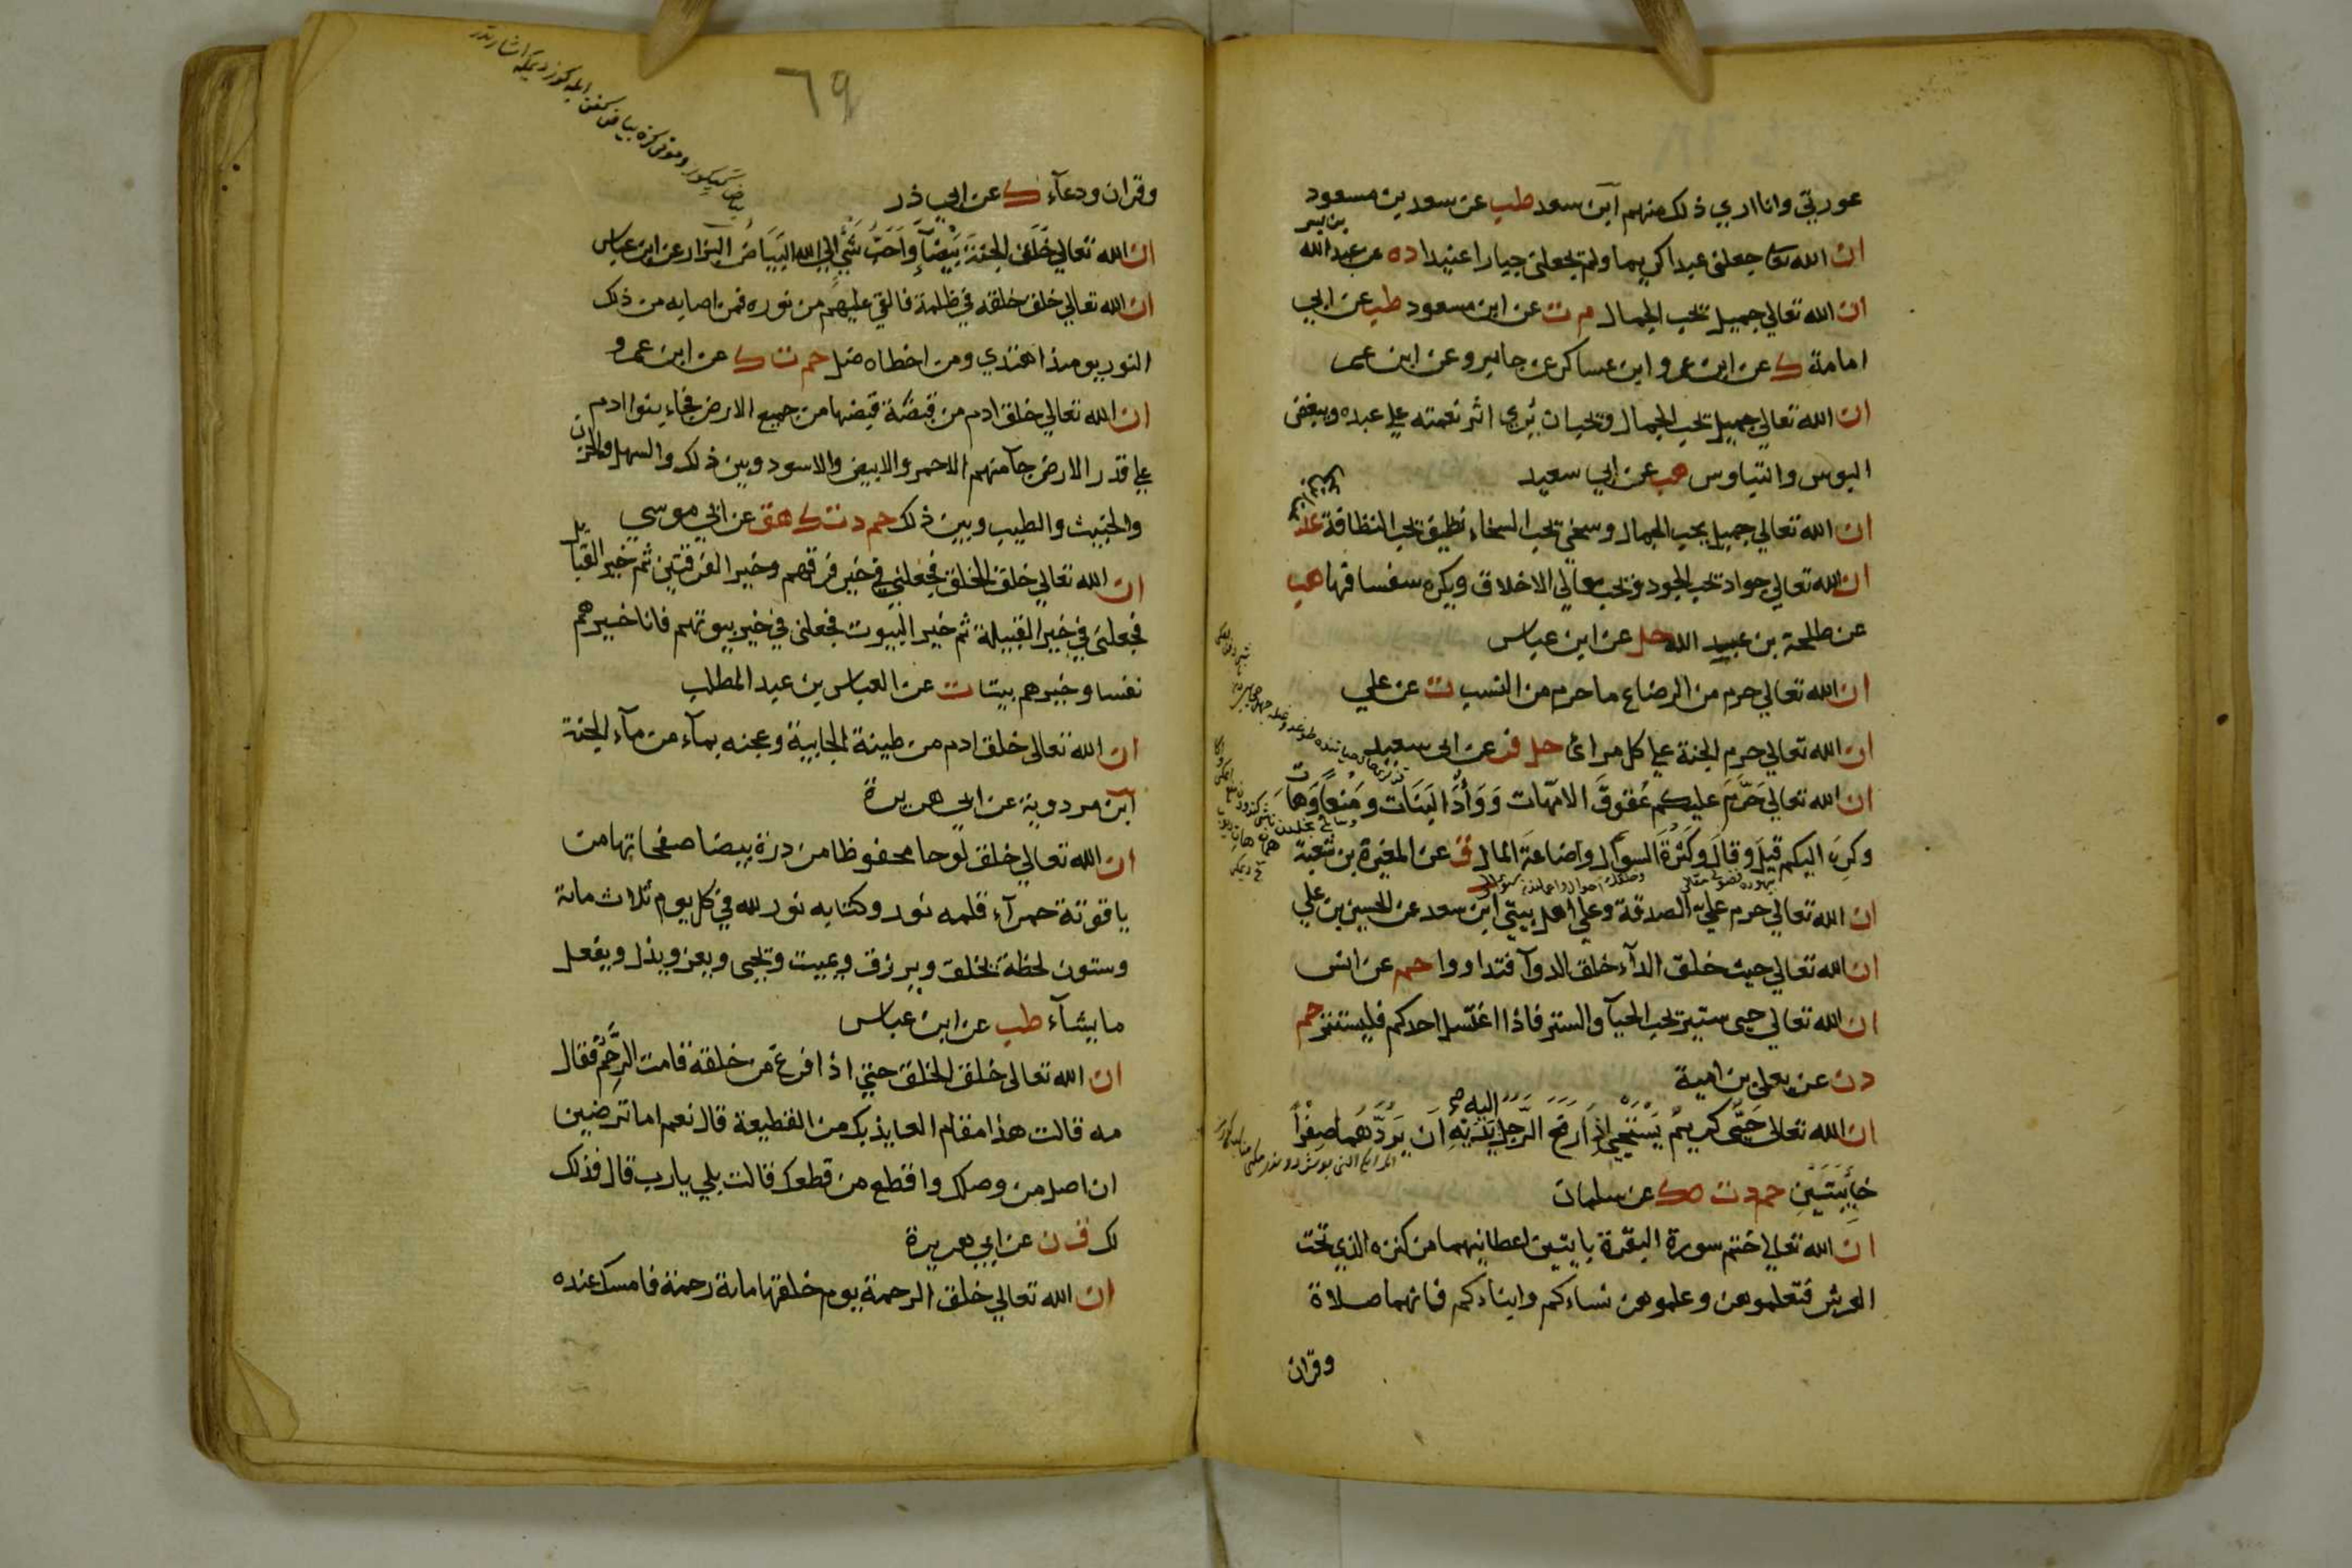 عورتي وانا اري ذلك منهم ابن سعد طب عن سعد بن مسعود
ان الله تعا جعلني عبدا كريما ولم يجعلني جبارا عنيدا ده عن عبد الله
بن بسر
ان الله تعالي جميل يحب الجمال م ت عن ابن مسعود طب عن ابي
امامة ك عن ابن عمر و ابن عساكر عن جابر وعن ابن عمر
ان الله تعالي جميل يحب الجمال ويحب ان يُري اثر نعمته علي عبده ويبغض
البوس والتباوس هب عن ابي سعيد
ان الله تعالي جميل يحب الجمال وسخي يحب السخاء نظيف يحب النظافة عد
ان الله تعالي جواد يحب الجود ويحب معالي الاخلاق ويكره سفسافها هب
عن طلحة بن عبيد الله حل عن ابن عباس
ان الله تعالي حرم من الرضاع ما حرم من النسب ت عن علي
ان الله تعالي حرم الجنة علي كل مرائ حل فر عن ابي سعيد
ان الله تعالي حَرَّمَ عليكم عُقوقَ الامّهات وَوَأْدَ البَنَات ومَنعًا وَهَات
وكرِه اليكم قيلَ وقالَ وكثرة السؤال واضاعة المال ق عن المغيرة بن شعبة
ان الله تعالي حرم علي الصدقة وعلي اهل بيتي ابن سعد عن الحسين بن علي
ان الله تعالي حيث خلق الدآء خلق الدوآ فتداووا حم عن انس
ان الله تعالي حيي ستير يحب الحيآ والستر فاذا اغتسل احدكم فليستتر حم
دن عن يعلي بن امية
ان الله تعالي حَيٌّ كريمٌ يَسْتَحْيي اذا رفعَ الرَّجلُ اليه يَدَيْهِ اَن يَرُدَّهُما صِفْرًا
خَائِبَتَيْنِ حم د ت ه ك عن سلمان
ان الله تعالي ختم سورة البقرة بايتين اعطانيهما من كنزه الذي تحت
العرش فتعلموهن وعلموهن نساءكم وابناءكم فانهما صلاة
وقران
٦٩
وقران ودعآء ك عن ابي ذر
ان الله تعالي خَلَقَ الجنّةَ بَيْضآءَ واَحَبُّ شَيْءٍ الي الله البَيَاضُ البزار عن ابن عباس
ان الله تعالي خلق خلقه في ظلمة فالقي عليهم من نوره فمن اصابه من ذلك
النور يومئذ اهتدي ومن اخطاه ضل حم ت ك عن ابن عمرو
ان الله تعالي خلق ادم من قبضَة قبضها من جميع الارض فجاء بنوا ادم
علي قدر الارض جآ منهم الاحمر والابيض والاسود وبين ذلك والسهل والحزن
والخبيث والطيب وبين ذلك حم د ت ك هق عن ابي موسي
ان الله تعالي خلق الخلق فجعلني في خير فرقهم وخير الفرقتين ثم خير القبايل
فجعلني في خير القبيلة ثم خير البيوت فجعلني في خير بيوتهم فانا خيرهم
نفسا وخيرهم بيتا ت عن العباس بن عبد المطلب
ان الله تعالي خلق ادم من طينة الجابية وعجنه بمآء من مآء الجنة
ابن مردوية عن ابي هريرة
ان الله تعالي خلق لوحا محفوظا من درة بيضا صفحاتها من
ياقوتة حمرآء قلمه نور وكتابه نور لله في كل يوم ثلاث مائة
وستون لحظة يخلق ويرزق ويميت ويحيي ويعز ويذل ويفعل
ما يشآء طب عن ابن عباس
ان الله تعالي خلق الخلق حتي اذا فرغ من خلقه قامت الرَّحِمُ فقال
مه قالت هذا مقام العايذ بك من القطيعة قال نعم اما ترضين
ان اصل من وصلك واقطع من قطعك قالت بلي يارب قال فذلك
لك ق ن عن ابي هريرة
ان الله تعالي خلق الرحمة يوم خلقها مائة رحمة فامسك عنده